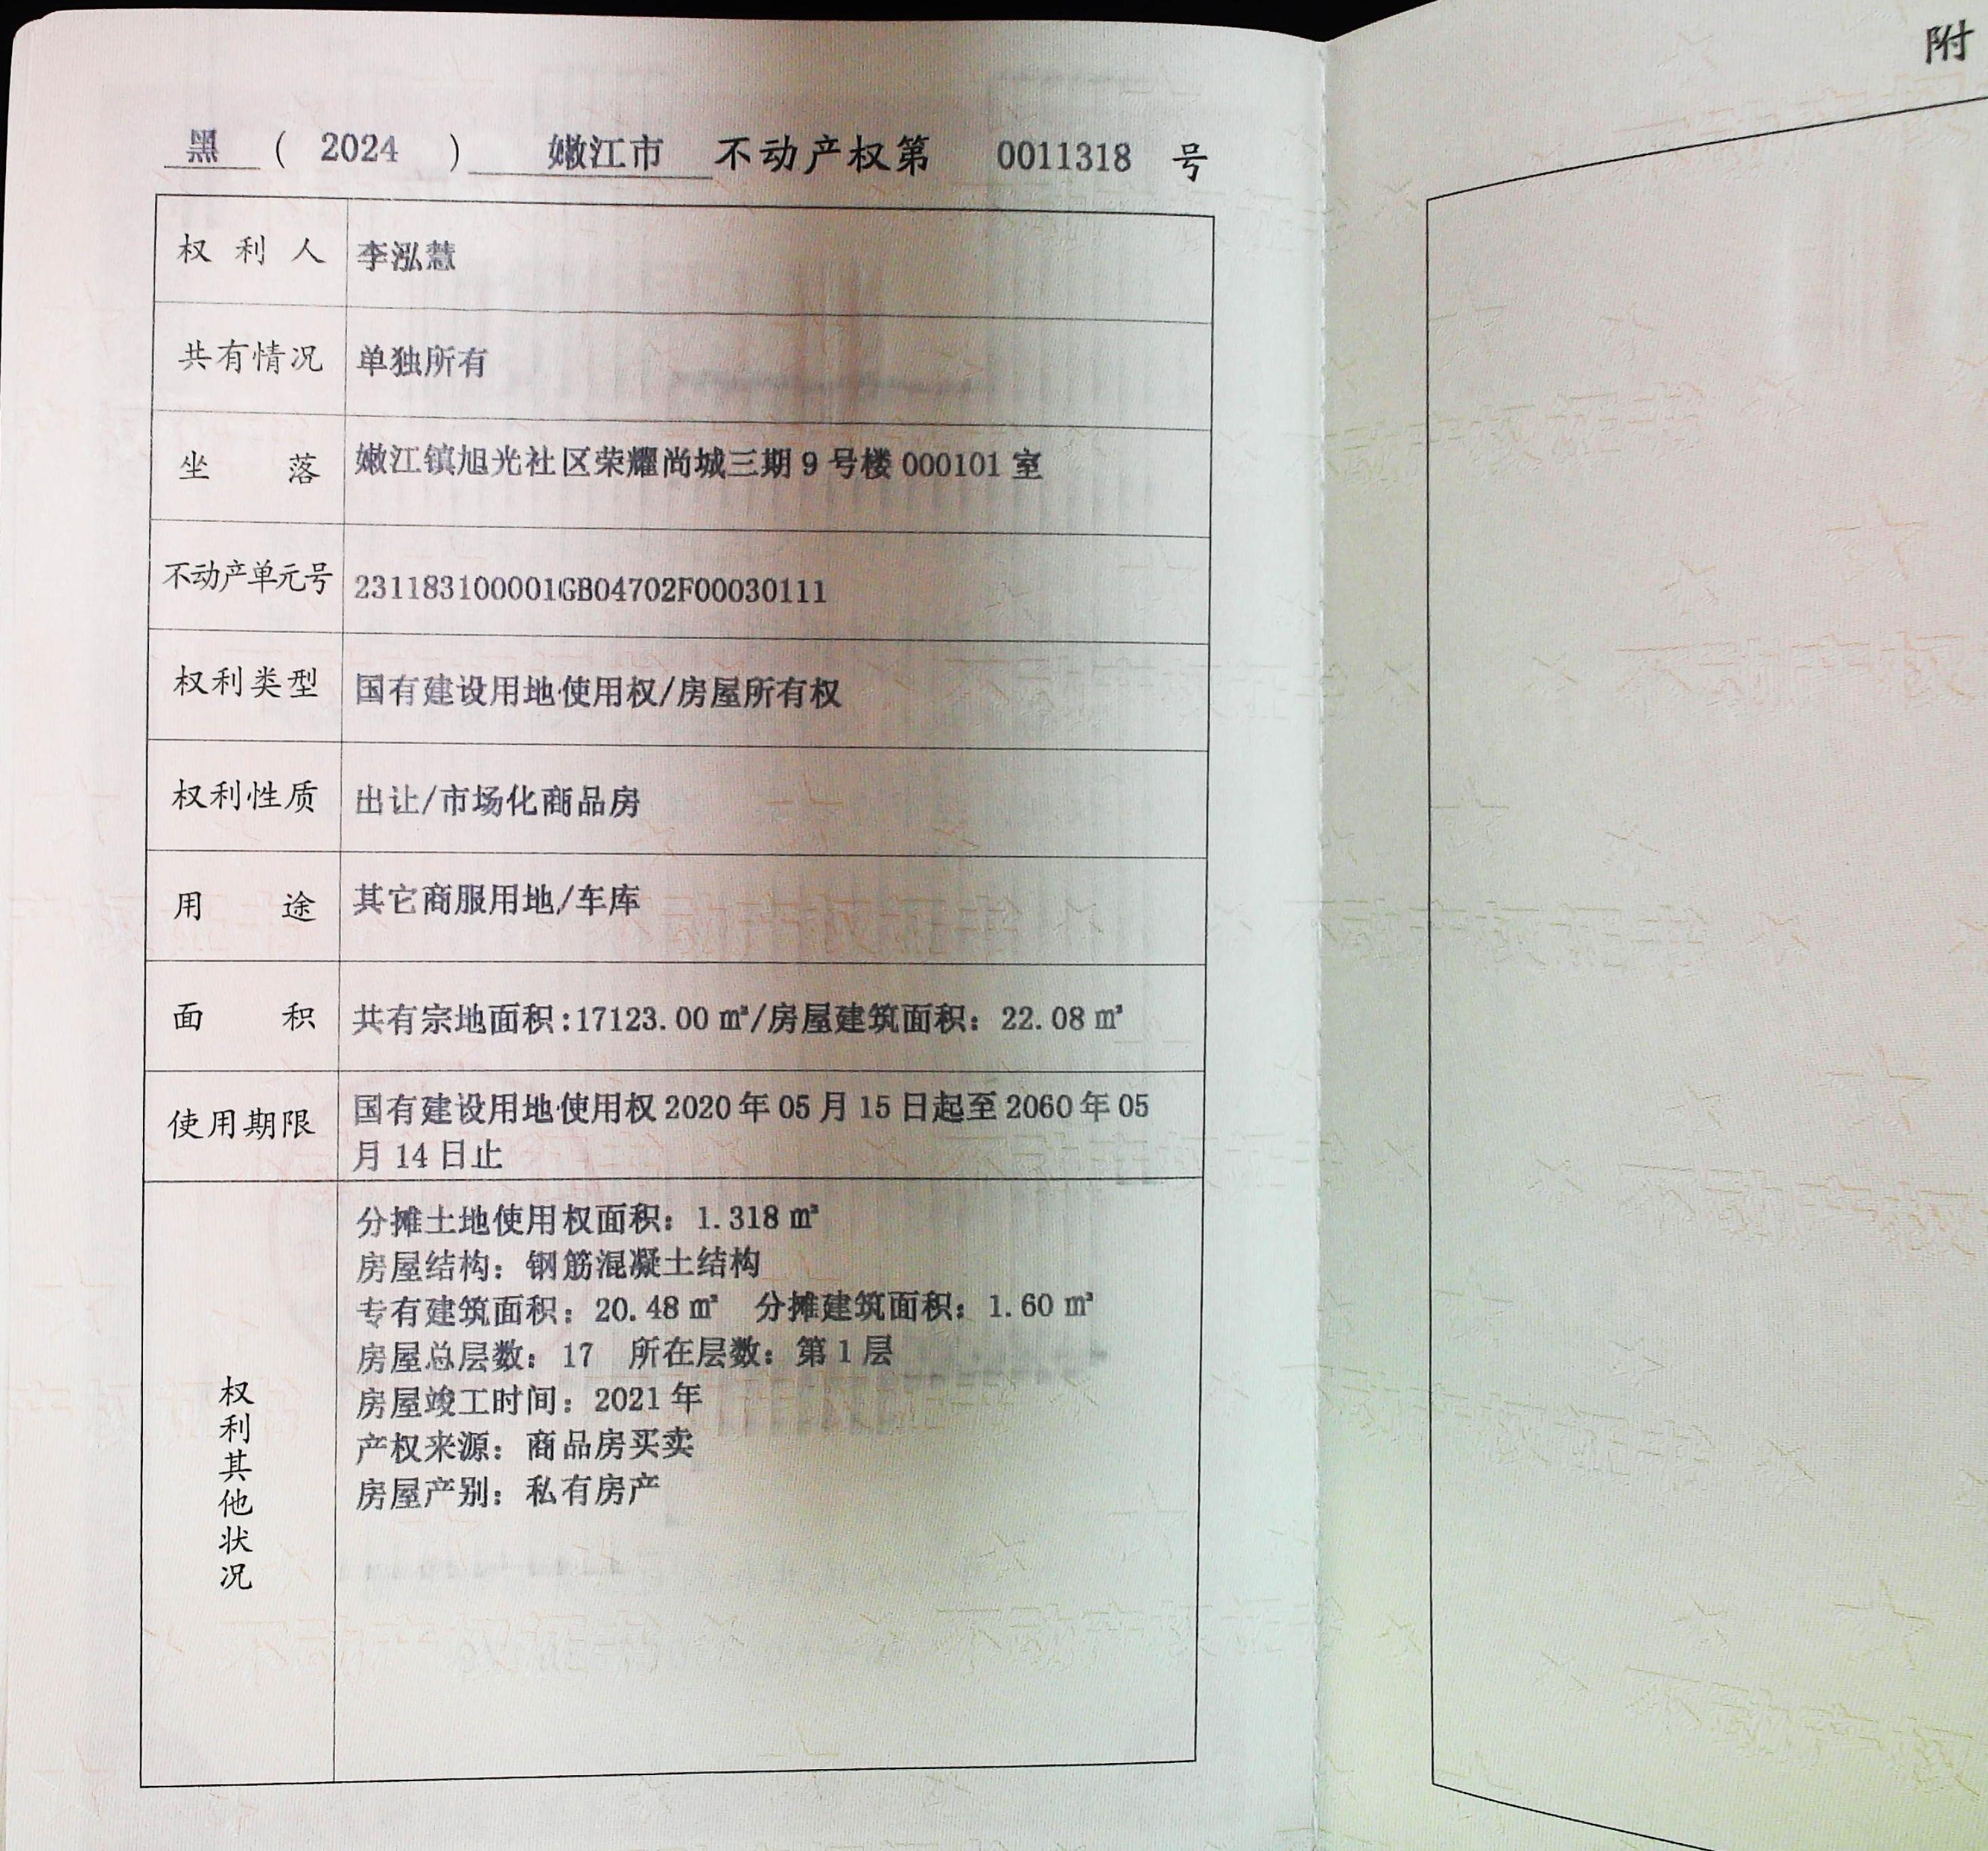 黑 ( 2024 ) 嫩江市 不动产权第 0011318 号
附
权利人 李泓慧
共有情况 单独所有
坐落 嫩江镇旭光社区荣耀尚城三期 9 号楼 000101 室
不动产单元号 231183100001GB04702F00030111
权利类型 国有建设用地使用权/房屋所有权
权利性质 出让/市场化商品房
用途 其它商服用地/车库
面积 共有宗地面积:17123.00 ㎡/房屋建筑面积：22.08 ㎡
使用期限 国有建设用地使用权 2020 年 05 月 15 日起至 2060 年 05
月 14 日止
权利其他状况
分摊土地使用权面积：1.318 ㎡
房屋结构：钢筋混凝土结构
专有建筑面积：20.48 ㎡ 分摊建筑面积：1.60 ㎡
房屋总层数：17 所在层数：第 1 层
房屋竣工时间：2021 年
产权来源：商品房买卖
房屋产别：私有房产